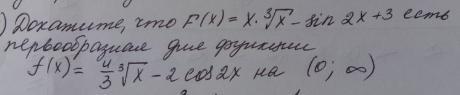 ) Докажите, что F(x) = x · ∛x - sin 2x + 3 есть
первообразная для функции
f(x) = 4/3 ∛x - 2 cos 2x на (0; ∞)